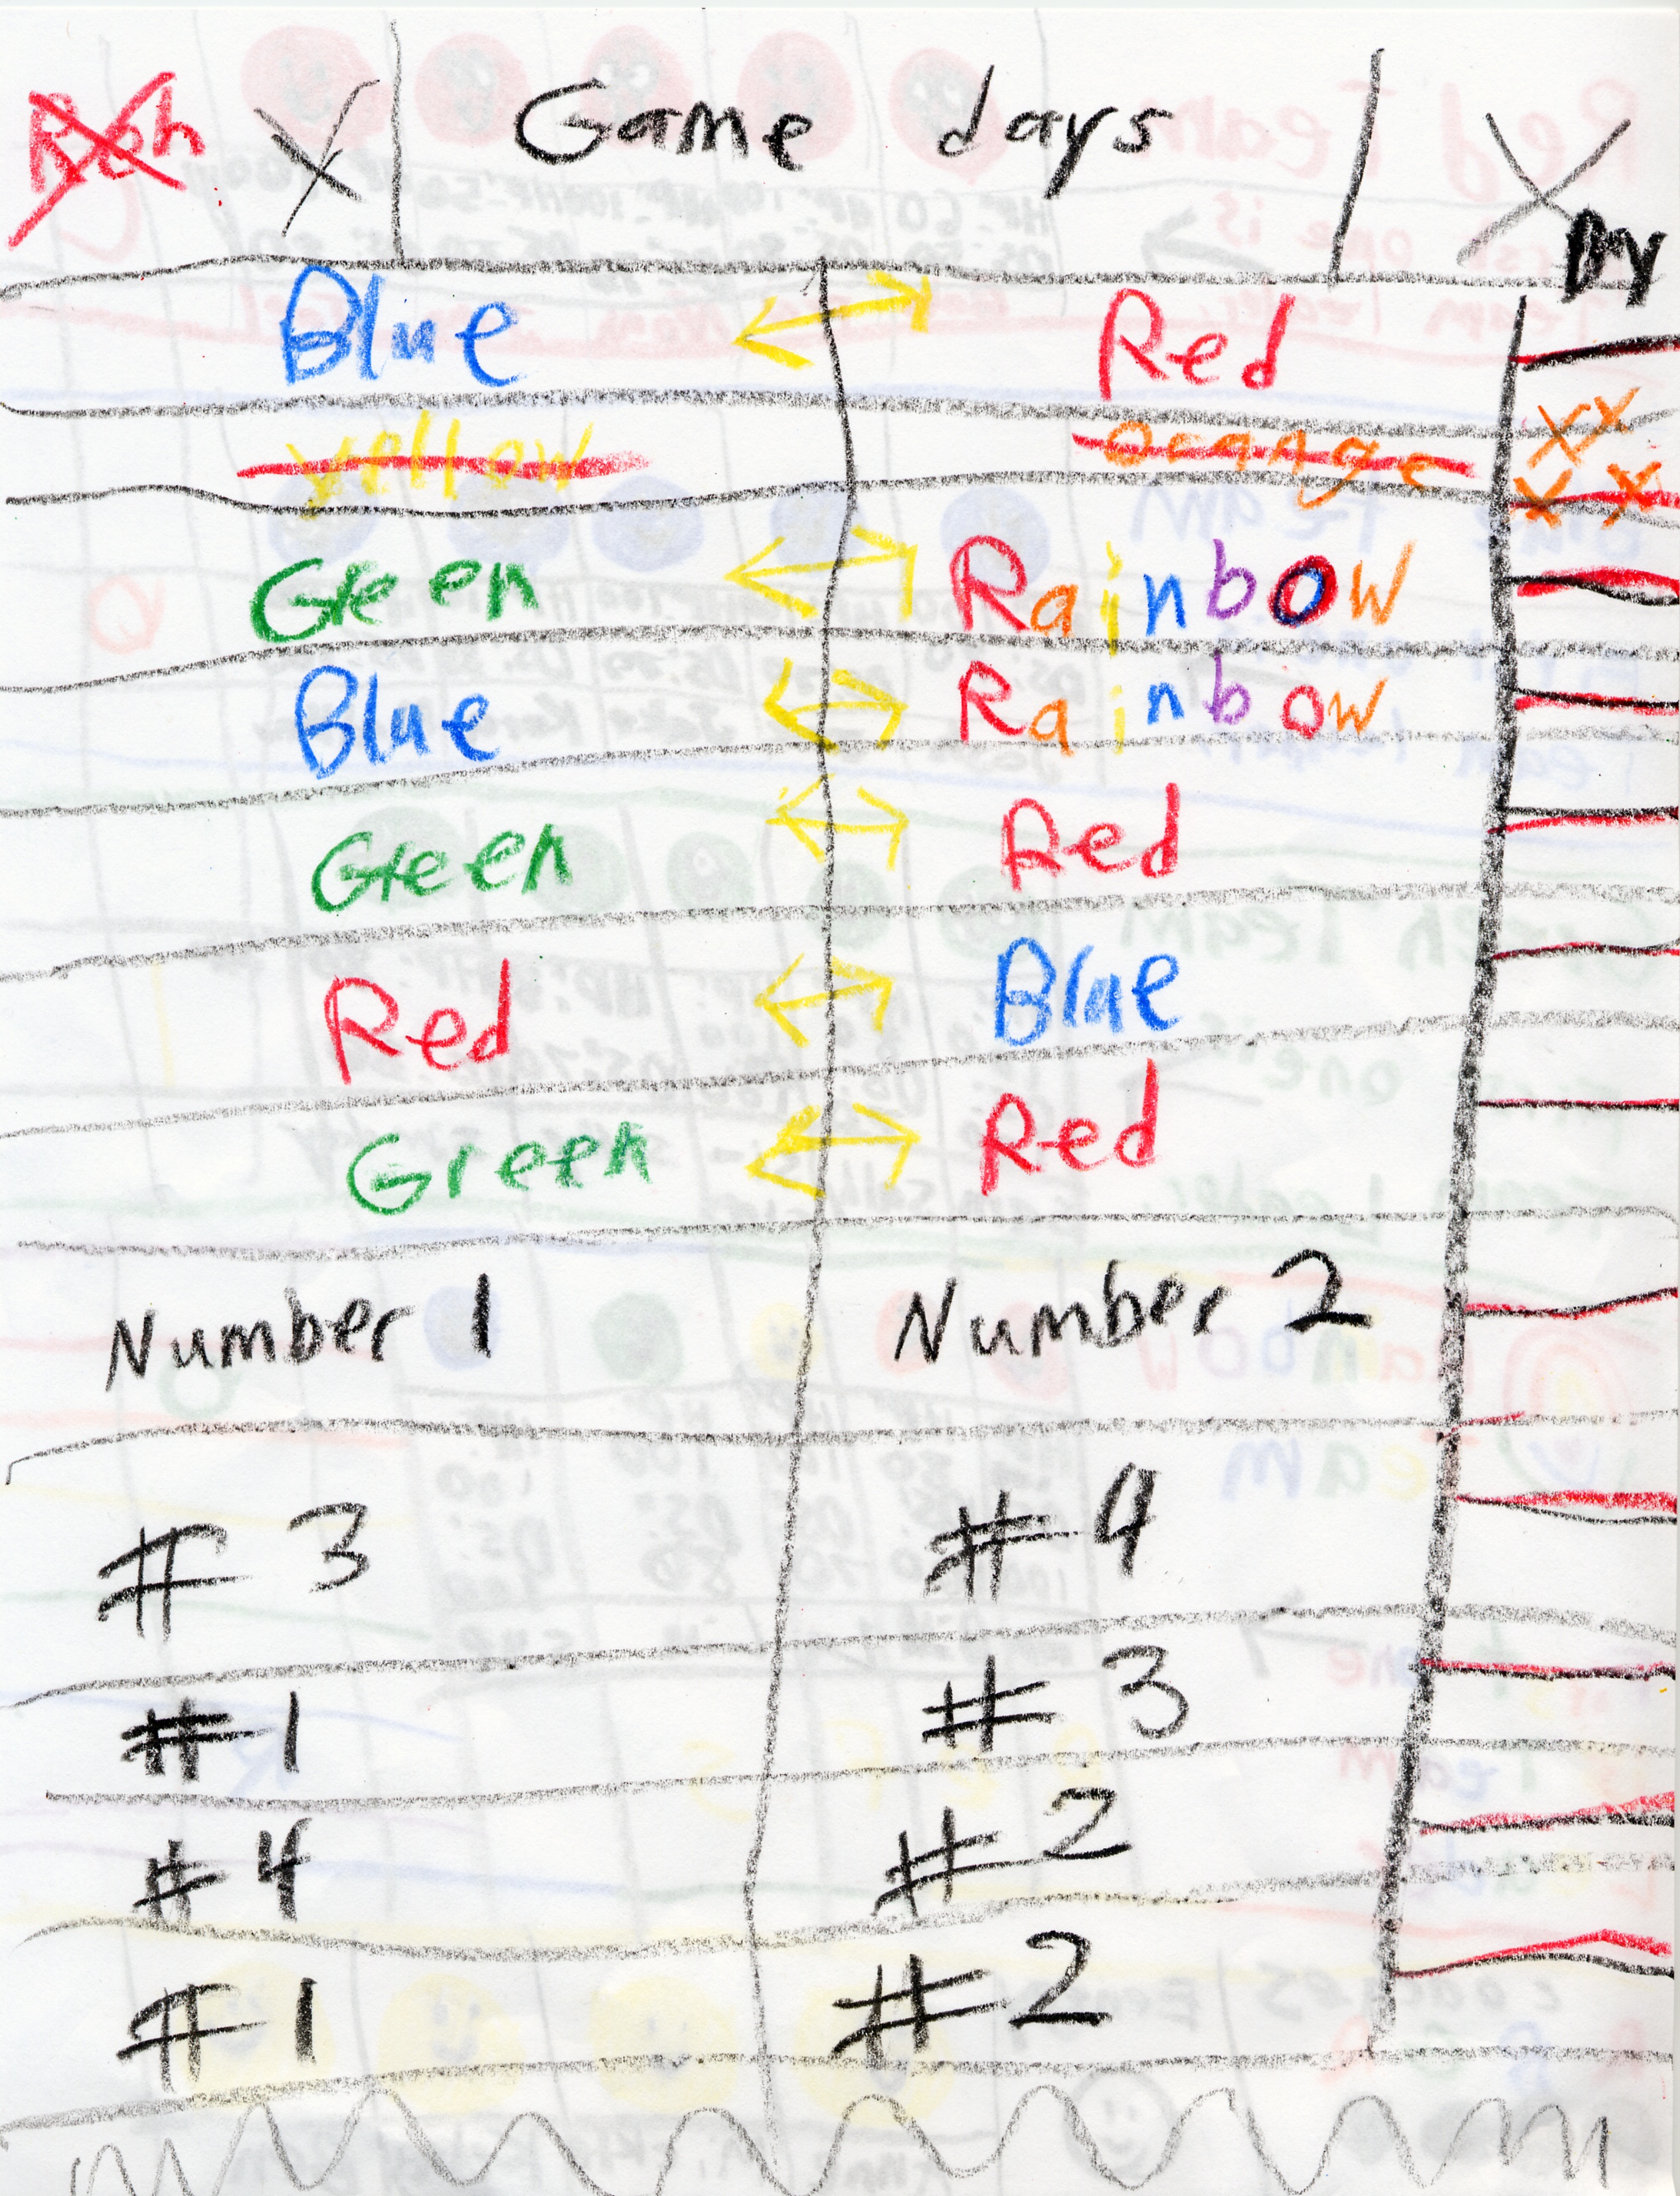 Game days
Blue Red
yellow orange
Green Rainbow
Blue Rainbow
Green Red
Red Blue
Green Red
Number 1 Number 2
# 3 # 4
# 1 # 3
# 4 # 2
# 1 # 2